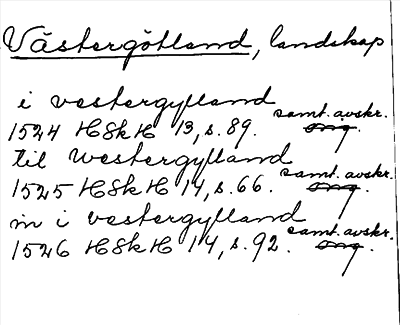 Västergötland, landskap
i vestergylland
1524 HSkH 13, s. 89. samt. avskr. orig.
til Westergylland
1525 HSkH 14, s. 66. samt. avskr. orig.
in i vestergylland
1526 HSkH 14, s. 92. samt. avskr. orig.